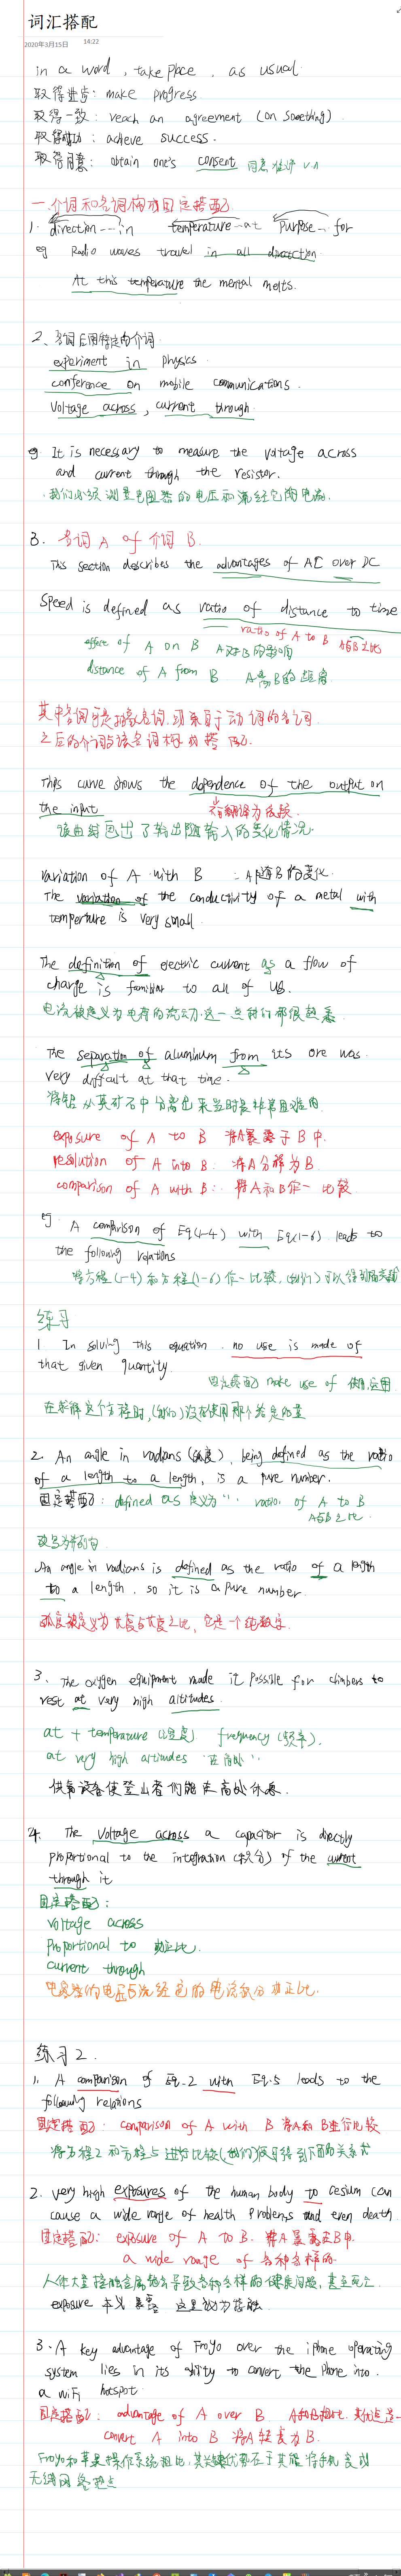 词汇搭配
2020年3月15日 14:22
in a word , take place , as usual
取得进步: make progress
取得一致: reach an agreement (on something)
取得成功: achieve success.
取得同意: obtain one's consent 同意 准许 v.n
一.介词和名词构成固定搭配
1. direction --- in temperature -- at purpose -- for
eg Radio waves travel in all direction
At this temperature the mental melts.
2、名词后用特定的介词
experiment in physics
conference on mobile communications.
Voltage across , current through
eg It is necessary to measure the voltage across
and current through the resistor.
我们必须测量电阻器的电压和流经它的电流.
3. 名词 A of 介词 B.
This section describes the advantages of AC over DC
Speed is defined as ratio of distance to time
ratio of A to B A与B之比
effect of A on B A对B的影响
distance of A from B A离B的距离
之后的介词与该名词构成搭配.
This curve shows the dependence of the output on
the input
该曲线画出了输出随输入的变化情况.
variation of A with B : A随B的变化.
The variation of the conductivity of a metal with
temperture is very small.
The definition of electric current as a flow of
charge is familiar to all of us.
电流被定义为电荷的流动.这一点我们都很熟悉
The separation of aluminum from its ore was
very difficult at that time.
将铝从其矿石中分离出来当时是非常困难的
exposure of A to B 将A暴露于B中.
resolution of A into B: 将A分解为B
comparison of A with B: 将A和B作一比较
eg. A comparison of Eq(1-4) with Eq(1-6) leads to
the following relations
练习
1 In solving this equation . no use is made of
that given quantity.
固定搭配 make use of 使用,运用
在求解这个方程时,(我们)没有使用那个给定的量
2. An angle in radians (弧度), being defined as the ratio
of a length to a length, is a pure number.
固定搭配: defined as 定义为… ratio of A to B
A与B之比.
改写为并列句
An angle in radians is defined as the ratio of a length
to a length. so it is a pure number
弧度被定义为长度与长度之比,它是一个纯数字.
3. The oxygen equipment made it possible for climbers to
rest at very high altitudes.
at + temperature (温度) frequency (频率).
at very high altitudes 在高处
供氧设备使登山者们能在高处休息.
4. The voltage across a capacitor is directly
proportional to the integration (积分) of the current
through it
固定搭配:
voltage across
proportional to 成正比.
current through
电容器的电压与流经它的电流积分成正比.
练习2.
1. A comparison of Eq.2 with Eq.5 leads to the
following relations
固定搭配: comparison of A with B 将A和B进行比较
将方程2和方程5进行比较(我们)便可得到下面的关系式
2. very high exposures of the human body to cesium can
cause a wide range of health problems and even death
固定搭配: exposure of A to B. 将A暴露在B中.
a wide range of 各种各样的
人体大量接触金属铯会导致各种各样的健康问题,甚至死亡
exposure 本义 暴露 这里改为接触
3. A key advantage of Froyo over the iphone operating
system lies in its ability to convert the phone into
a wifi hotspot
固定搭配: advantage of A over B
convert A into B 将A转变为B.
Froyo和苹果操作系统相比,其关键优势在于其能将手机变成
无线网络热点